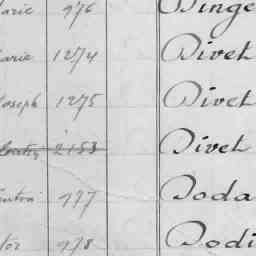 arie 976 Dinge
arie 1274 Divet
Joseph 1275 Divet
2153 Divet
977 Doda
tor 978 Dodi